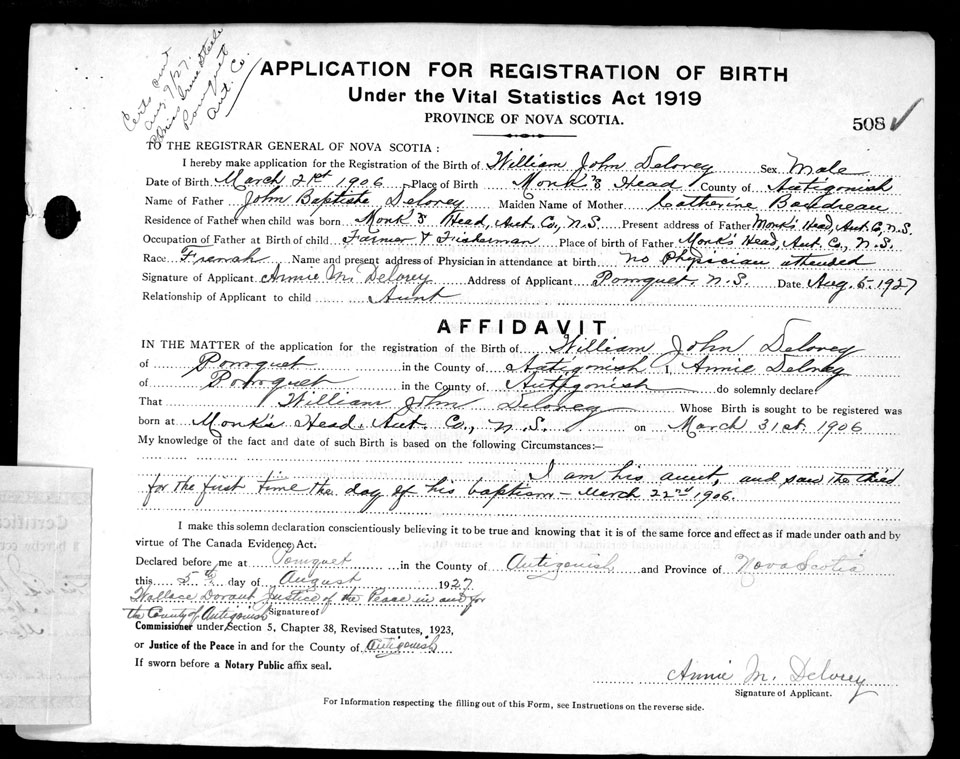 Certs sent
Aug 9/27.
Miss Irene Steele
Pomquet
Ant. Co.
APPLICATION FOR REGISTRATION OF BIRTH
Under the Vital Statistics Act 1919
PROVINCE OF NOVA SCOTIA.
508
TO THE REGISTRAR GENERAL OF NOVA SCOTIA:
I hereby make application for the Registration of the Birth of William John Delorey Sex Male
Date of Birth March 21st 1906 Place of Birth Monk's Head County of Antigonish
Name of Father John Baptiste Delorey Maiden Name of Mother Catherine Boudreau
Residence of Father when child was born Monk's Head, Ant. Co., N.S. Present address of Father Monk's Head, Ant. Co., N.S.
Occupation of Father at Birth of child Farmer & Fisherman Place of birth of Father Monk's Head, Ant. Co., N.S.
Race French Name and present address of Physician in attendance at birth no physician attended
Signature of Applicant Annie M. Delorey Address of Applicant Pomquet, N.S. Date Aug. 5. 1927
Relationship of Applicant to child Aunt
AFFIDAVIT
IN THE MATTER of the application for the registration of the Birth of William John Delorey
of Pomquet in the County of Antigonish I, Annie Delorey
of Pomquet in the County of Antigonish do solemnly declare:
That William John Delorey Whose Birth is sought to be registered was
born at Monk's Head, Ant. Co., N.S. on March 31st. 1906
My knowledge of the fact and date of such Birth is based on the following Circumstances:—
I am his aunt, and saw the child
for the first time the day of his baptism - March 22nd 1906.
I make this solemn declaration conscientiously believing it to be true and knowing that it is of the same force and effect as if made under oath and by
virtue of The Canada Evidence Act.
Declared before me at Pomquet in the County of Antigonish and Province of Nova Scotia
this 5th day of August 1927
Wallace Dorant Justice of the Peace in and for
the County of Antigonish Signature of
Commissioner under Section 5, Chapter 38, Revised Statutes, 1923,
or Justice of the Peace in and for the County of Antigonish
If sworn before a Notary Public affix seal.
Annie M. Delorey
Signature of Applicant.
For Information respecting the filling out of this Form, see Instructions on the reverse side.